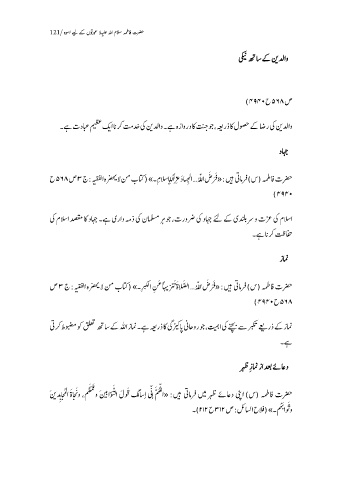 حضرت فاطمہ سلام اللہ علیہا عورتوں کے لیے اسوہ /121
والدین کے ساتھ نیکی
ص ۵۶۸ ح ۴۹۴۰)
والدین کی رضا کے حصول کا ذریعہ، جو جنت کا دروازہ ہے۔ والدین کی خدمت کرنا ایک عظیم عبادت ہے۔
جہاد
حضرت فاطمہ (س) فرماتی ہیں: «فَرَضَ اللهُ... الجِهادَ عِزّاً لِلإسلامِ۔» (کتاب من لا یحضرہ الفقیہ: ج ۳ ص ۵۶۸ ح
۴۹۴۰)
اسلام کی عزت و سربلندی کے لئے جہاد کی ضرورت، جو ہر مسلمان کی ذمہ داری ہے۔ جہاد کا مقصد اسلام کی
حفاظت کرنا ہے۔
نماز
حضرت فاطمہ (س) فرماتی ہیں: «فَرَضَ اللهُ... الصَّلاةَ تَنزيهاً عَنِ الكِبرِ۔» (کتاب من لا یحضرہ الفقیہ: ج ۳ ص
۵۶۸ ح ۴۹۴۰)
نماز کے ذریعے تکبر سے بچنے کی اہمیت، جو روحانی پاکیزگی کا ذریعہ ہے۔ نماز اللہ کے ساتھ تعلق کو مضبوط کرتی
ہے۔
دعائے بعد از نمازِ ظہر
حضرت فاطمہ (س) اپنی دعائے ظہر میں فرماتی ہیں: «اللَّهُمَّ إِنِّي أسألك قَولَ التَّوّابينَ وعَمَلَهُم، ونَجاةَ المُجاهِدينَ
وثَوابَهُم۔» (فلاح السائل: ص ۳۱۲ ح ۲۱۲)۔